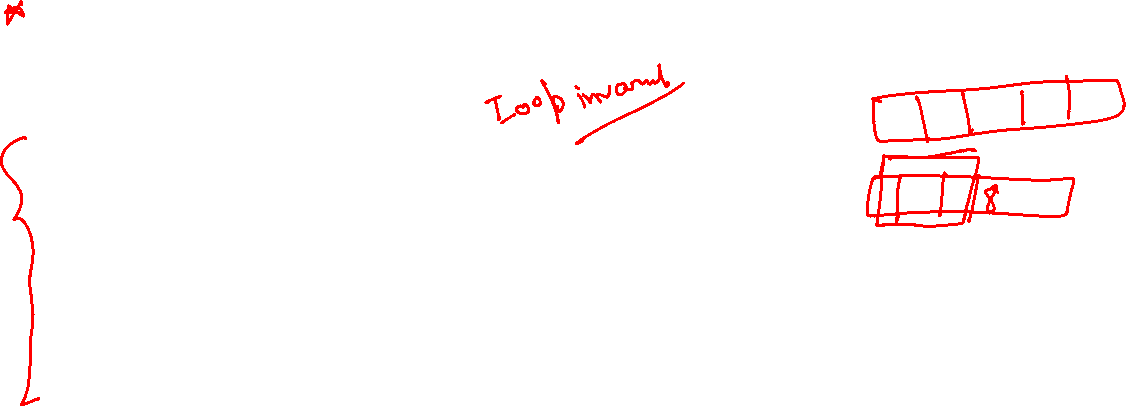 Loop invariant
8